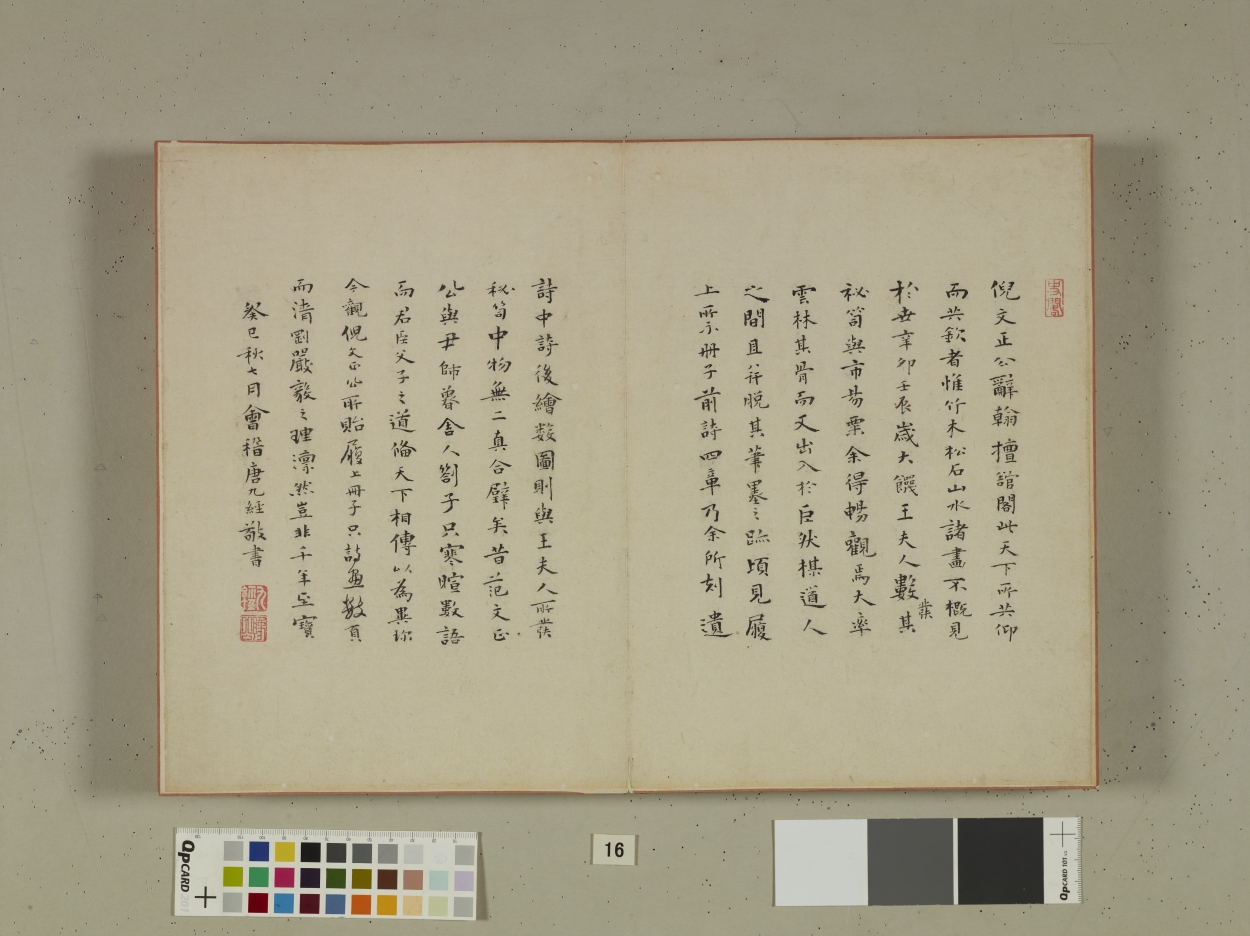 倪文正公辭翰擅舘閣此天下所共仰
而共欽者惟竹木松石山水諸畫不概見
於世辛卯壬辰歲大饑王夫人數發其
祕笥與市易粟余得暢觀焉大率
雲林其骨而又出入於巨然楳道人
之間且并脫其筆墨之跡頃見履
上所示冊子前詩四章乃余所刻遺
詩中詩後繪数圖則與王夫人所發
秘笥中物無二真合璧矣昔范文正
公與尹師魯舍人劄子只寒暄數語
而君臣父子之道俻天下相傳以為異珎
今觀倪文正公所貽履上冊子只詩畫数頁
而清剛嚴毅之理凛然豈非千年至寶
癸巳秋七月會稽唐九經敬書
16
QpCARD 201
QpCARD 101